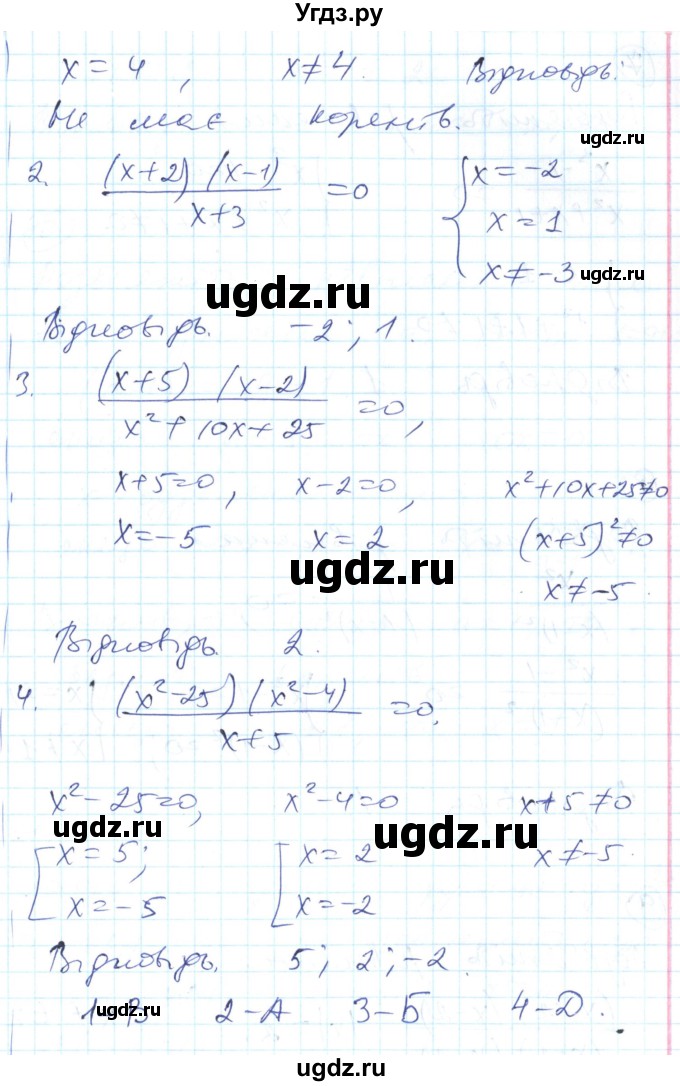 Угдз.ру
x = 4 , x ≠ 4. Відповідь:
Не має коренів.
ugdz.ru
2. (x+2) (x-1) / x+3 = 0 { x = -2
x = 1
x ≠ -3 ugdz.ru
ugdz.ru
Відповідь. -2 ; 1.
3. (x+5) (x-2) / x² + 10x + 25 = 0,
x+5=0, x-2=0, x²+10x+25≠0
x=-5 x = 2 (x+5)²≠0
ugdz.ru
x ≠ -5.
Відповідь 2.
4. (x²-25) (x²-4) / x+5 = 0,
x²-25=0, x²-4=0 x+5≠0
ugdz.ru ugdz.ru
[ x = 5; [ x = 2 x ≠ -5.
x = -5 x = -2
Відповідь. 5; 2; -2.
1-В 2-А 3-Б 4-Д.
ugdz.ru ugdz.ru
ugdz.ru